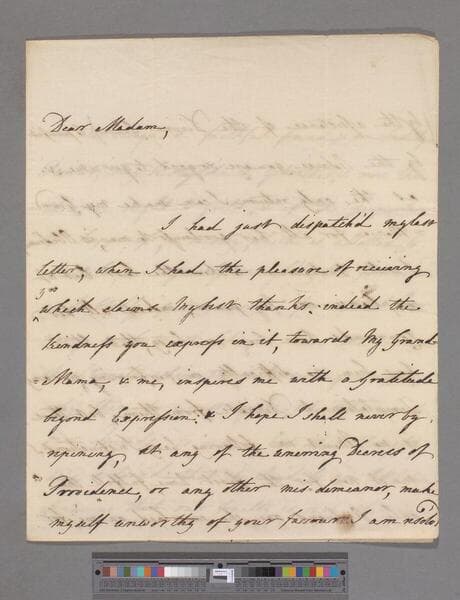 Dear Madam,
I had just dispatch'd my last
letter, when I had the pleasure of receiving
yrs
which claims My best thanks. indeed the
kindness you express in it, towards My Grand-
=Mama, & me, inspires me with a Gratitude
beyond Expression: & I hope I shall never by
repineing, at any of the unerring Decrees of
Providence, or any other mis-demeanor, make
myself unworthy of your favour: I am